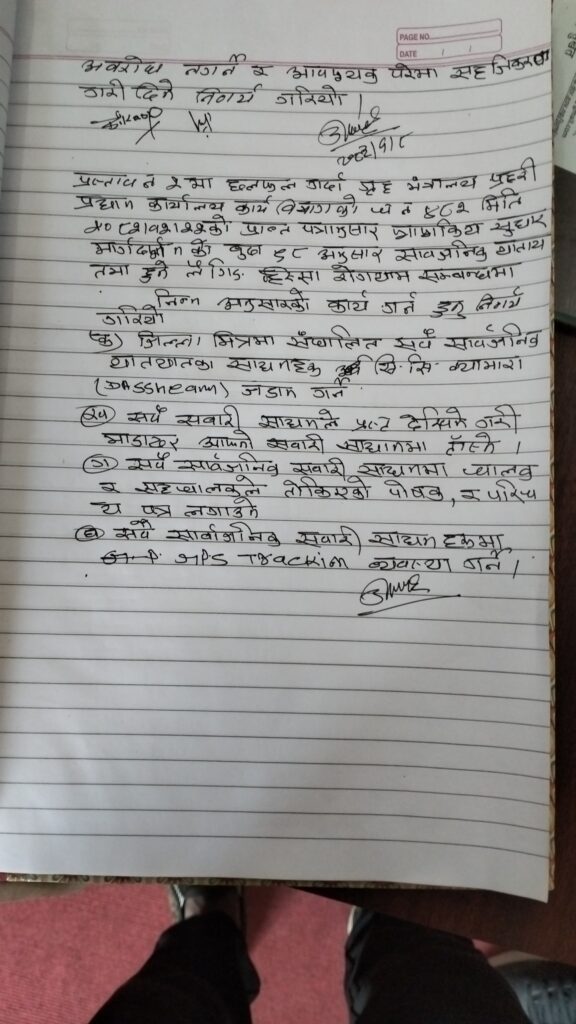 PAGE NO.
DATE / /
अवरोध नगर्ने र आवश्यक परेमा सहजिकरण
गरी दिने निर्णय गरियो ।
प्रस्ताव नं २ मा छलफल गर्दा गृह मंत्रालय प्रहरी
प्रधान कार्यालय कार्य विभागको च नं ४८२ मिति
को प्राप्त पत्रानुसार सुधार
मार्गदर्शन को बुदा ६८ अनुसार सार्वजनिक याताया
तमा हुने लैंगिक हिंस्सा रोगथाम सम्बन्धमा
निम्न अनुसारको कार्य गर्न हुन निर्णय
गरियो
(क) जिल्ला भित्रमा संचालित सवै सार्वजनिक
यातयातका साधनहरु सि. सि. क्यामारा
(Dassheam) जडान गर्ने
(ख) सवै सवारी साधनले प्रस्ट देखिने गरी
भाडादर आफ्नो सवारी साधानमा टाँस्ने ।
(ग) सवै सार्वजनिक सवारी साधानमा चालक
र सहचालकले तोकिएको पोषक, र परिच
य पत्र लगाउने
(घ) सवै सार्वाजनिक सवारी साधनहरुमा
GPS Trackim व्यवस्था गर्ने ।